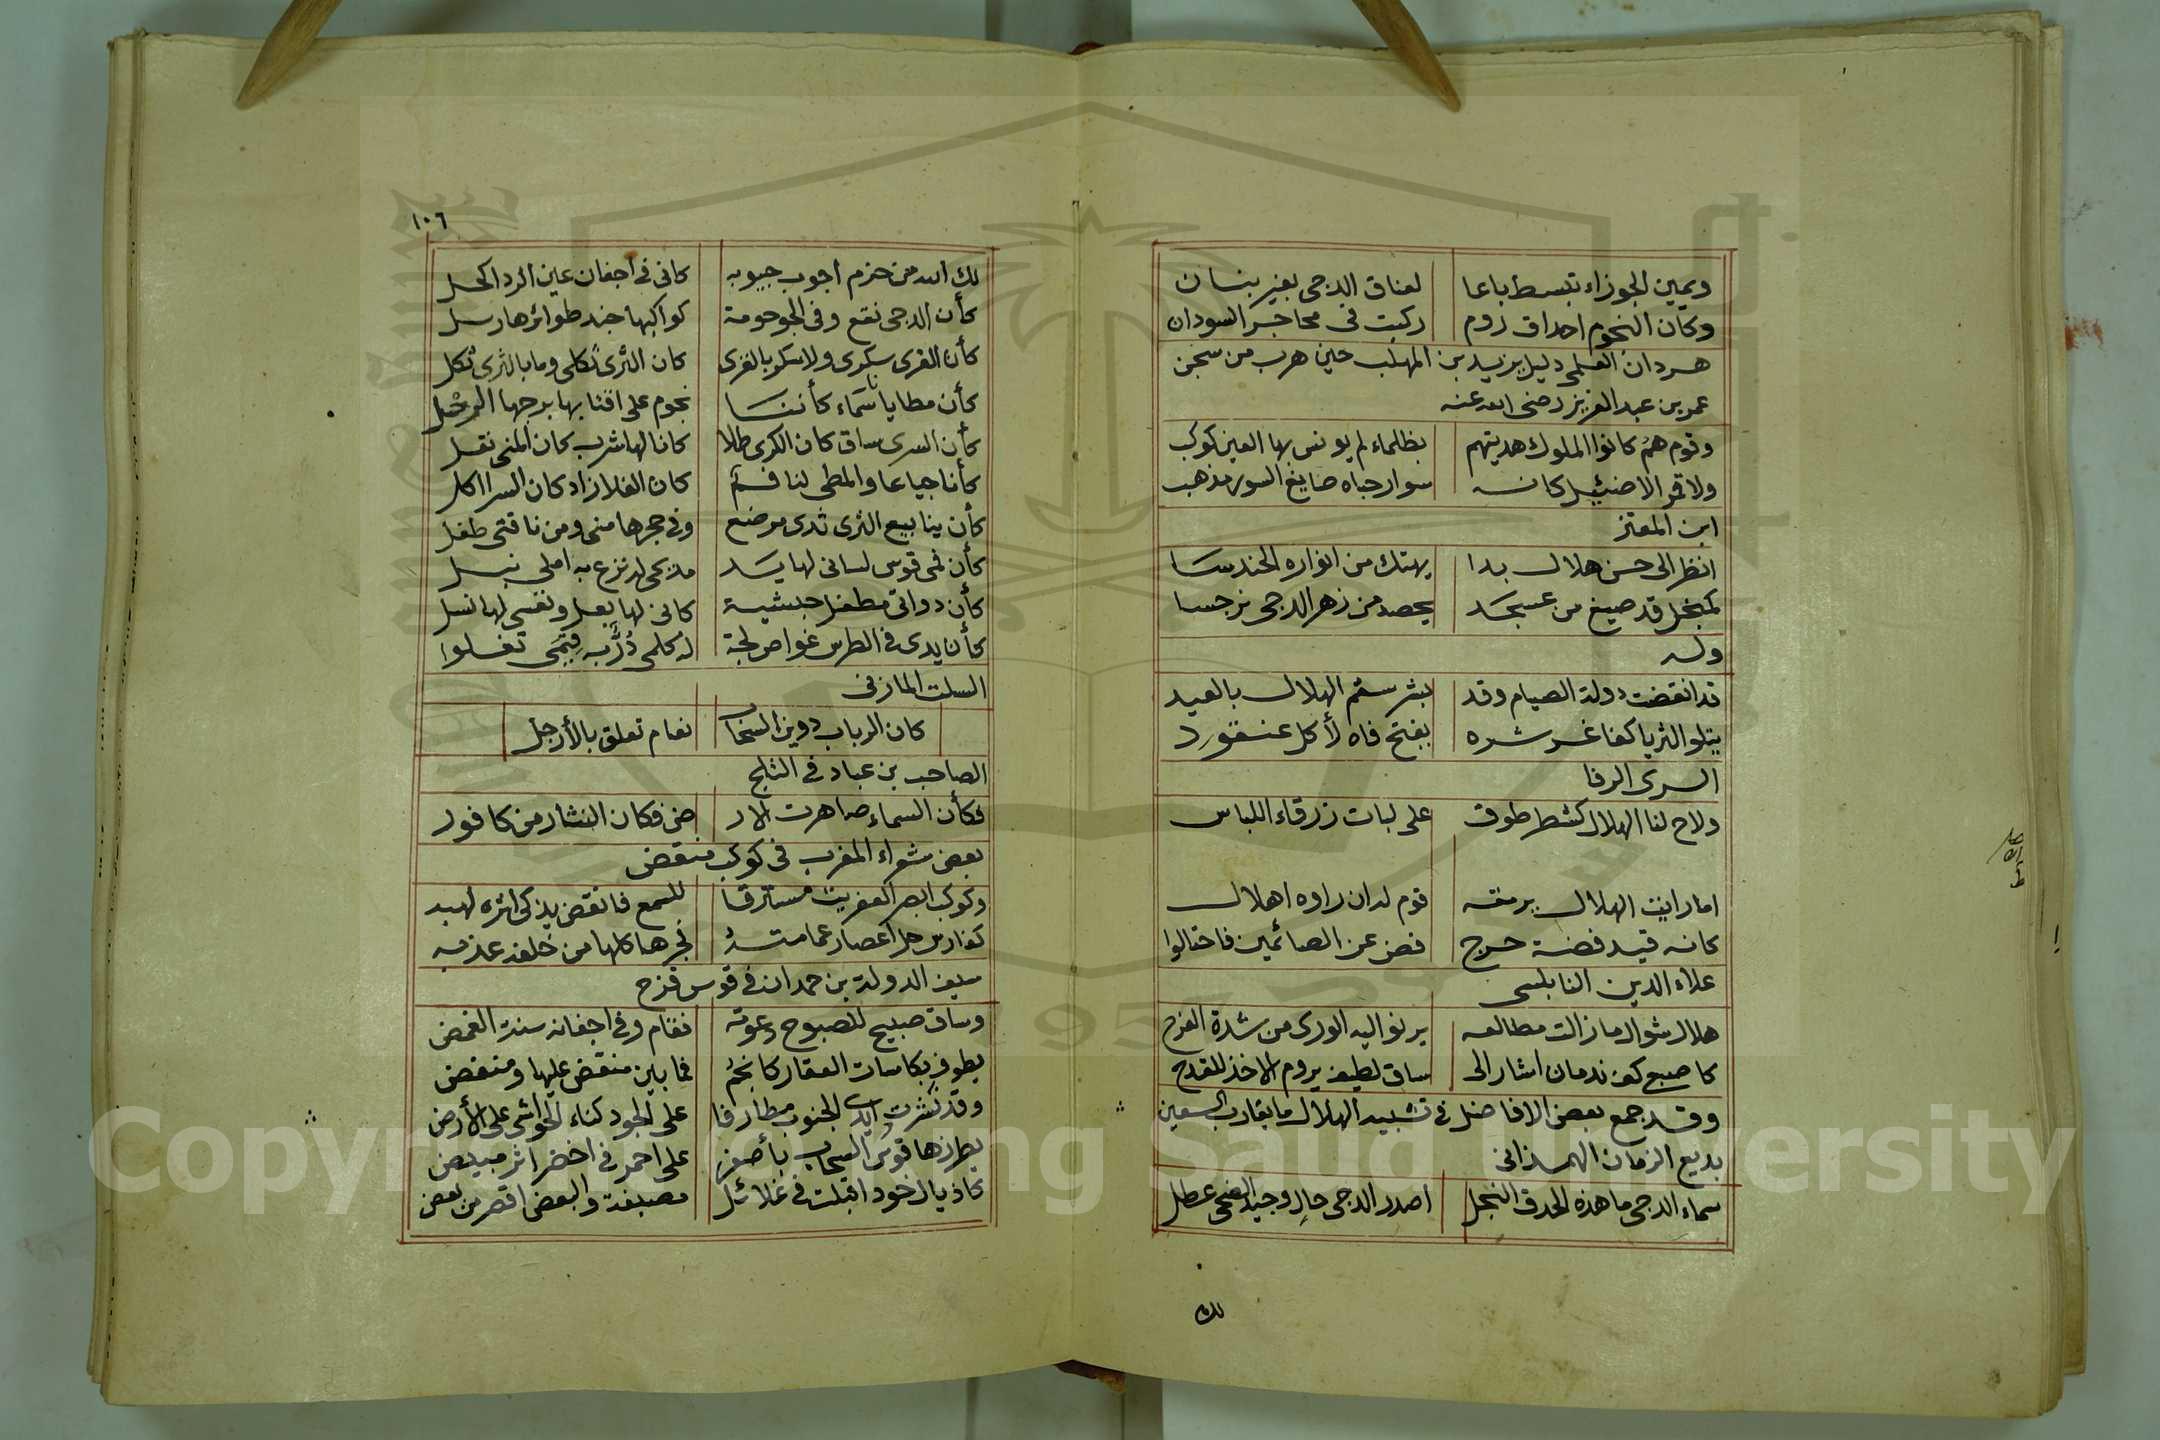 ويمين الجوزاء تبسط باعا لعناق الدجى بغير بنان
وكأن النجوم احداق روم ركبت فى محاجر السودان
هردان العلمى دليل يزيد بن المهلب حين هرب من سجن
عمر بن عبد العزيز رضى الله عنه
وقوم هم كانوا الملوك هديتهم بظلماء لم يونس بها العين كوكب
ولا قمر الا ضئيل كانه سوار حباه صايغ السور مذهب
ابن المعتز
انظر الى حسن هلال بدا يهتك من انواره الحندسا
كمنجل قد صيغ من عسجد يحصد من زهر الدجى نرجسا
وله
قد انقضت دولة الصيام وقد بشر سقم الهلال بالعيد
يتلو الثريا كفاغر شره يفتح فاه لأكل عنقود
السرى الرفا
ولاح لنا الهلال كشطر طوق على لبات زرقاء اللباس
اما رايت الهلال يرمقه قوم لدان راوه اهلال
كانه قيد فضة حرج فض عن الصائمين فاختالوا
علاء الدين النابلسى
هلال شوال ما زالت مطالعه يرنو اليه الورى من شدة الفرح
كاصبع كف ندمان اشار الى ساق لطيف يروم الاخذ للقدح
وقد جمع بعض الافاضل فى تشبيه الهلال ما يقارب السبعين
بديع الزمان الهمذانى
سماء الدجى ما هذه الحدق النجل اصدر الدجى حال وجيد الضحى عطل
لك
١٠٦
لك الله من حزم اجوب جيوبه كانى فى اجفان عين الردا كحل
كأن الدجى نقع وفى الجو حومة كواكبها جند طوائرها رسل
كأن القرى سكرى ولا سكر بالقرى كان الثرى ثكلى وما بالثرى ثكل
كأن مطايانا سماء كأننا نجوم على اقتابها برجها الرحل
كأن السرى ساق كان الكرى طلا كانا لها شرب كان المنى نقل
كأنا جياع والمطى لنا فم كان الفلا زاد كان السرا اكل
كأن ينابيع الثرى ثدى مرضع وفى حجرها منى ومن ناقتى طفل
كأن فمى قوس لسانى لها يد مديحى له نزع به املى نبل
كأن دواتى مطفل حبشية كانى لها بعل ونقسى لها نسل
كأن يدى فى الطرس غواص لجة له كلمى در به قيمى تغلوا
السلت المازنى
كان الرباب دوين السحاب نعام تعلق بالأرجل
الصاحب بن عباد فى الثلج
فكأن السماء صاهرت الار ض فكان النثار من كافور
بعض شعراء المغرب فى كوكب منقض
وكوكب ابصر العفريت مسترقا للسمع فانقض يذكى اثره لهبه
كفارس حل اعصار عمامته فجرها كلها من خلفه عذبه
سيف الدولة بن حمدان فى قوس قزح
وساق صبيح للصبوح دعوته فقام وفى اجفانه سنة الغمض
يطوف بكاسات العقار كانجم فما بين منقض عليها ومنفض
وقد نشرت ايدى الجنوب مطارفا على الجود كناء الحواشى على الأرض
يطرزها قوس السحاب بأصفر على احمر فى اخضر اثر مبيض
كاذيال خود اقبلت فى غلائل مصبغة والبعض اقصر من بعض
Copyright © King Saud University